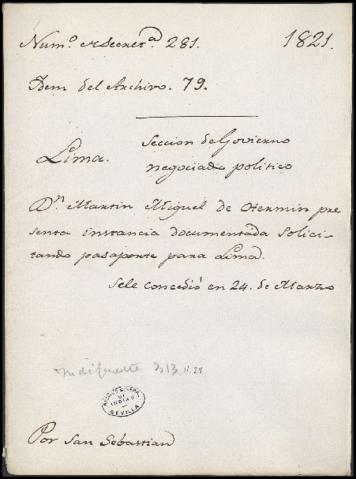 Num.º de Secret.ª 281. 1821.
Idem del Archivo. 79.
Lima. Seccion de Govierno
negociado politico
D.n Martin Miguel de Otermin pre
senta instancia documentada Solici
tando pasaporte para Lima.
Sele concedió en 24. de Marzo
Indiferente
ARCHIVO GENERAL
DE
INDIAS
SEVILLA
Por San Sebastian